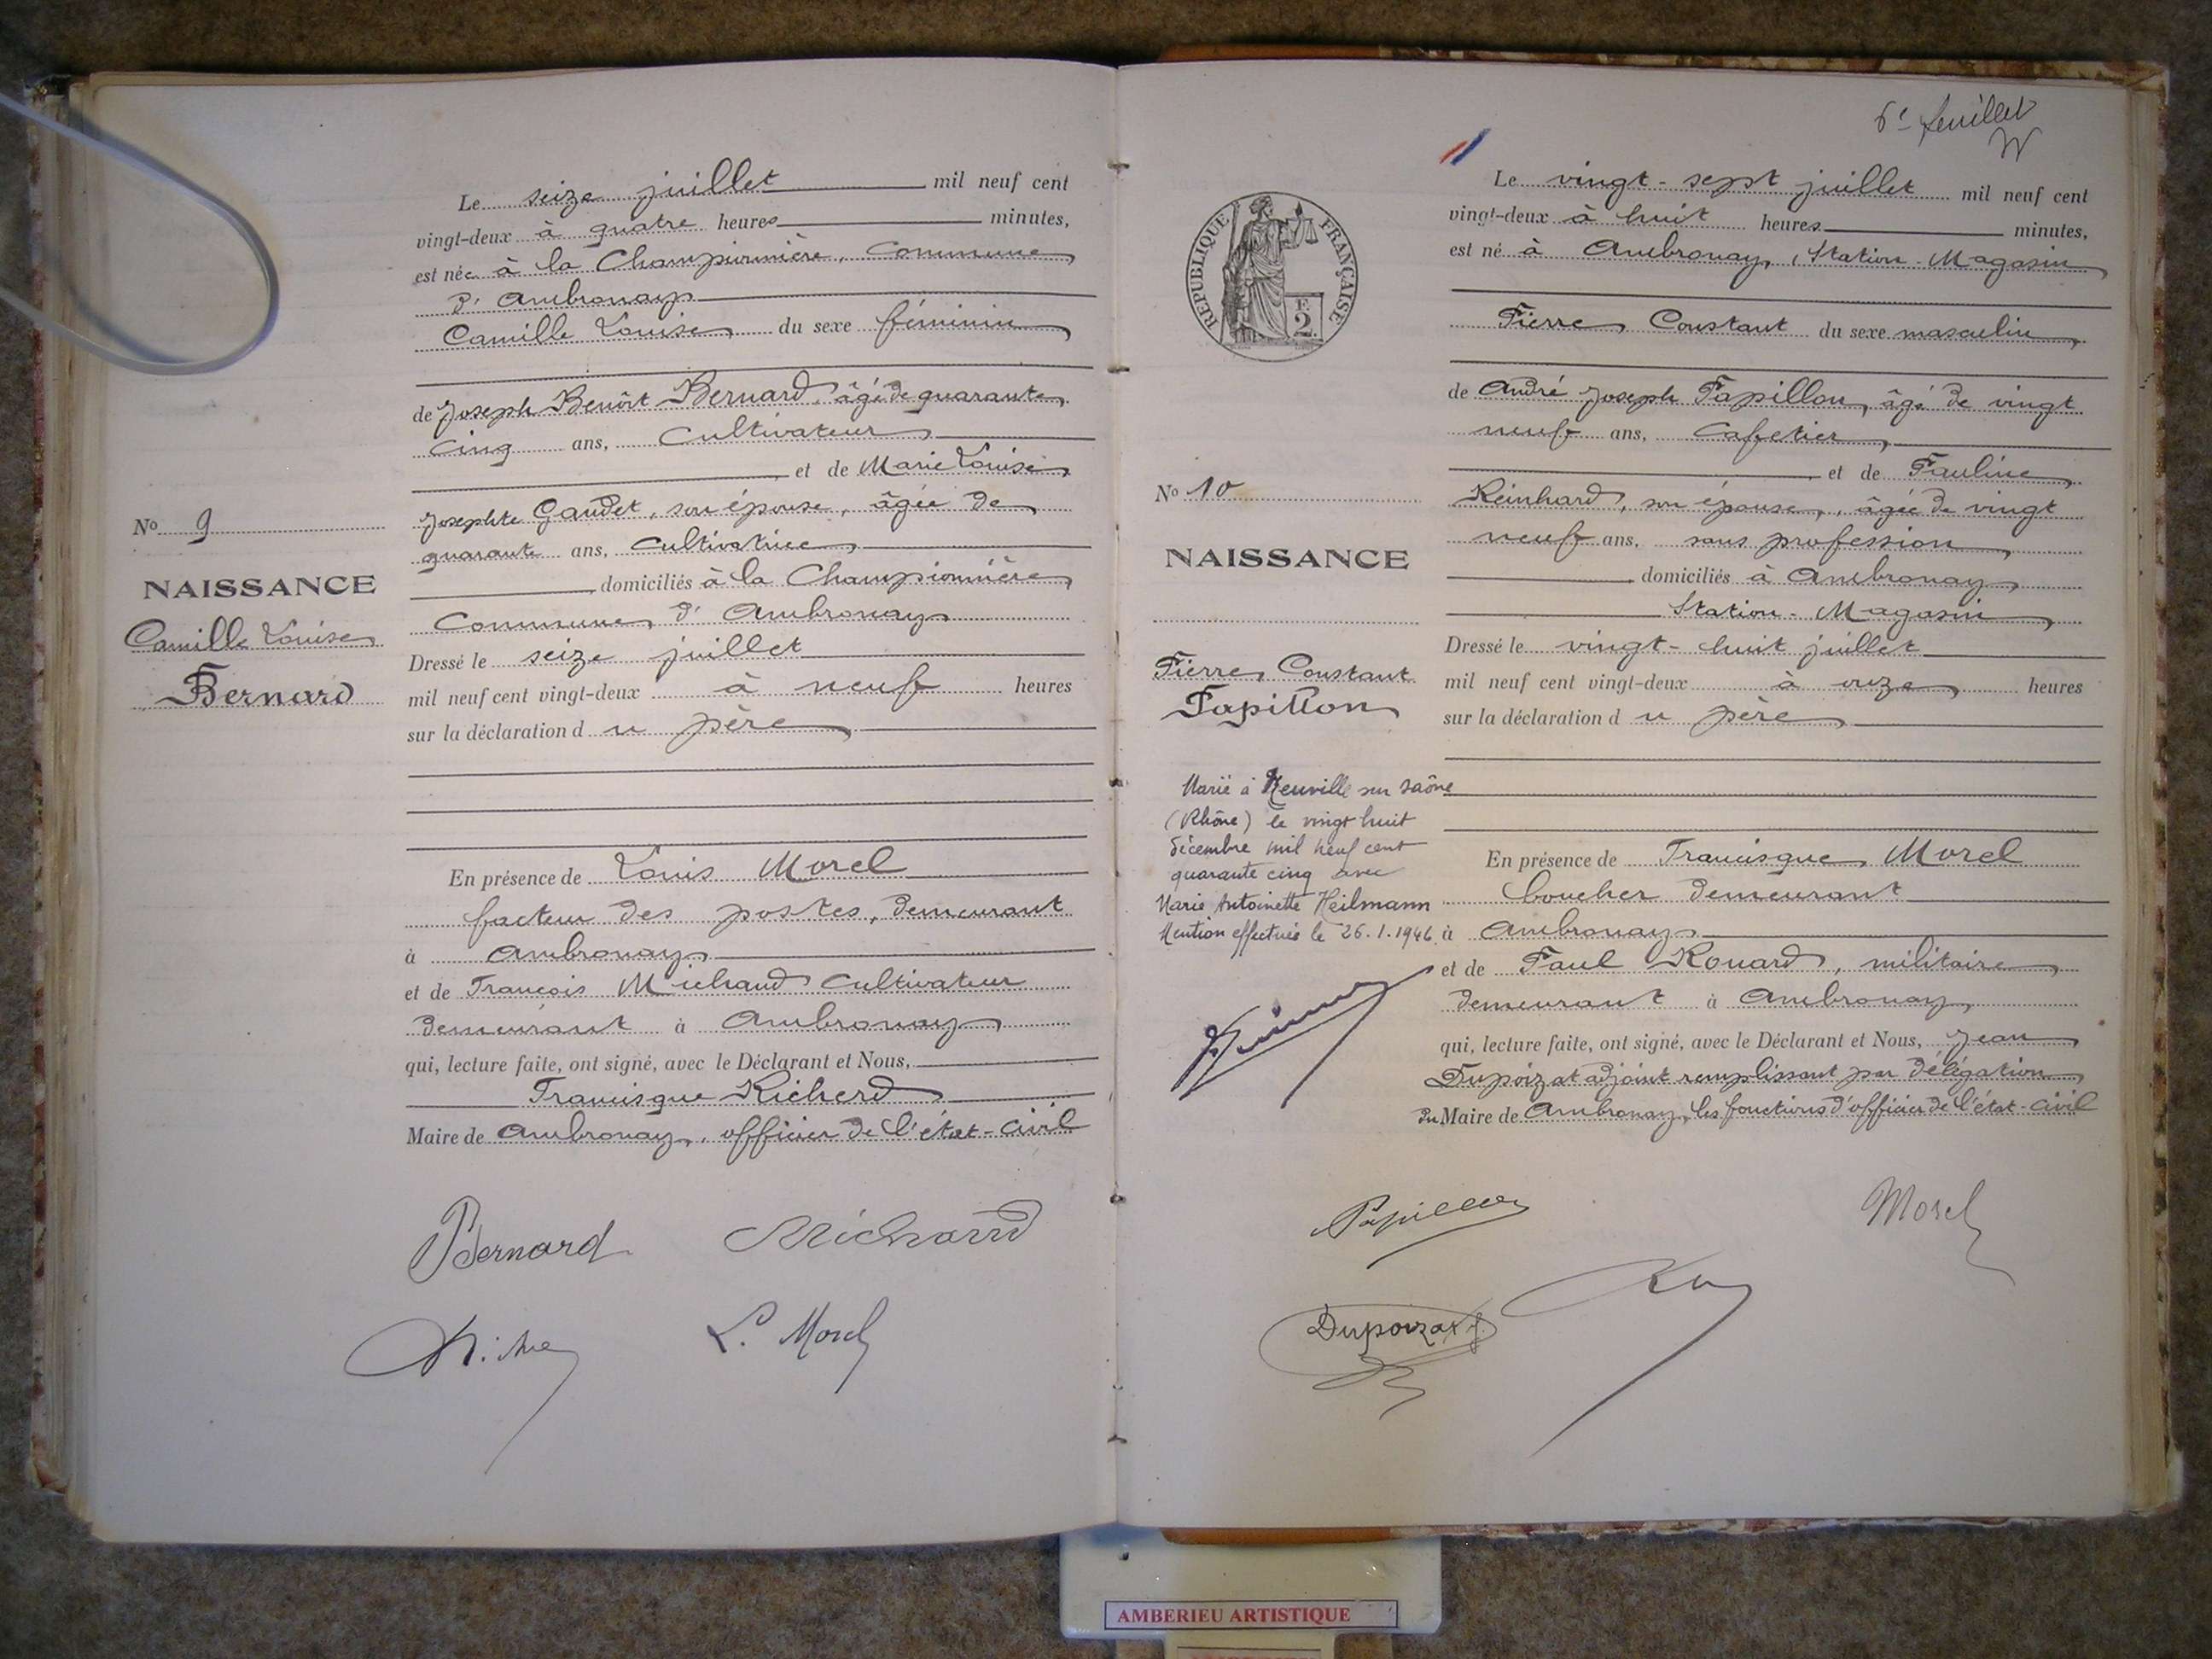 Le seize juillet mil neuf cent
vingt-deux à quatre heures minutes,
est née à la Championnière, Commune
d'Ambronay
Camille Louise du sexe féminin
de Joseph Benoît Bernard, âgé de quarante
cinq ans, Cultivateur
et de Marie Louise
Josephte Gaudet, son épouse, âgée de
quarante ans, Cultivatrice
domiciliés à la Championnière
Commune d'Ambronay
Dressé le seize juillet
mil neuf cent vingt-deux à neuf heures
sur la déclaration du père
No 9
NAISSANCE
Camille Louise
Bernard
En présence de Louis Morel
facteur des postes, demeurant
à Ambronay
et de François Michaud Cultivateur
demeurant à Ambronay
qui, lecture faite, ont signé, avec le Déclarant et Nous,
Francisque Richerd
Maire de Ambronay, officier de l'état-civil
Bernard Michaud
L. Morel
6e feuillet
REPUBLIQUE FRANÇAISE
E
2
Le vingt-sept juillet mil neuf cent
vingt-deux à huit heures minutes,
est né à Ambronay, Station-Magasin
Pierre Constant du sexe masculin
de André Joseph Papillon, âgé de vingt
neuf ans, Cafetier,
et de Pauline
Reinhard, son épouse, âgée de vingt
neuf ans, sans profession
domiciliés à Ambronay
Station-Magasin
Dressé le vingt-huit juillet
mil neuf cent vingt-deux à onze heures
sur la déclaration du père
No 10
NAISSANCE
Pierre Constant
Papillon
Marié à Neuville sur Saône
(Rhône) le vingt huit
décembre mil neuf cent
quarante cinq avec
Marie Antoinette Heilmann
Mention effectuée le 26.1.1946.
En présence de Francisque Morel
boucher demeurant
à Ambronay
et de Paul Rouard, militaire
demeurant à Ambronay
qui, lecture faite, ont signé, avec le Déclarant et Nous, Jean
Dupoizat adjoint remplissant par délégation
du Maire de Ambronay, les fonctions d'officier de l'état-civil
Papillon Morel
Dupoizat J.
AMBERIEU ARTISTIQUE